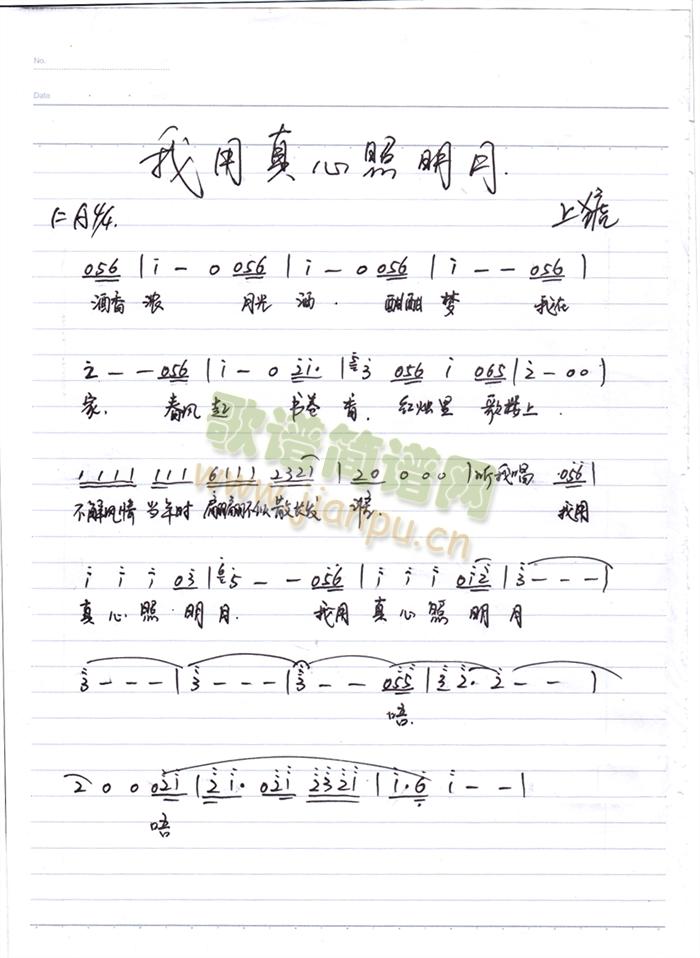 No.
Date
我用真心照明月.
1=A 4/4.
056 | i - 0 056 | i - 0 056 | i - - 056 |
酒香浓 月光 洒. 酣酣梦 我在
2 - - 056 | i - 0 2i. | 3 056 i 065 | 2 - 0 0 |
家. 春风起 书卷香. 红烛里 歌楼上.
1111 111 6111 2321 | 20 0 0 0 | 听我唱 056 |
不解风情 当年时 翩翩不似散长发 我用
i i i 03 | 5 - - 056 | i i i 0i2 | 3 - - - |
真心照 明月. 我用真心照 明月
3 - - - | 3 - - - | 3 - - 055 | 3 2. 2 - - |
唔.
2 0 0 02i | 2i. 02i 2321 | i.6 i - - |
唔
歌谱简谱网
www.jianpu.cn